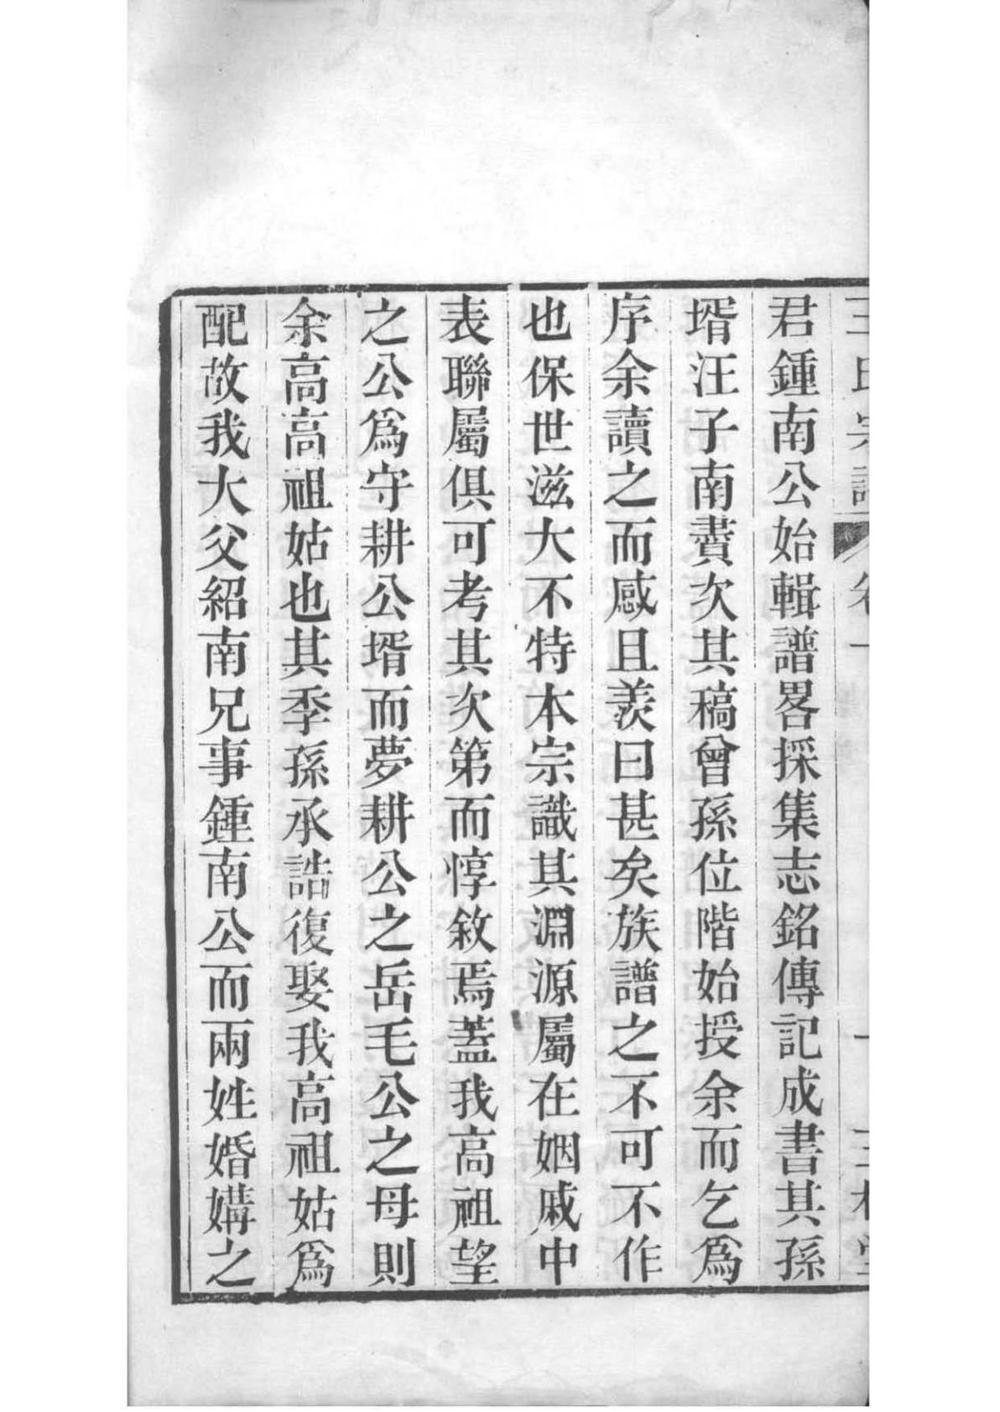 君鍾南公始輯譜畧採集志銘傳記成書其孫
壻汪子南賷次其稿曾孫位階始授余而乞爲
序余讀之而感且羨曰甚矣族譜之不可不作
也保世滋大不特本宗識其淵源屬在姻戚中
表聯屬俱可考其次第而惇敘焉蓋我高祖望
之公爲守耕公壻而夢耕公之岳毛公之母則
余高高祖姑也其季孫承誥復娶我高祖姑爲
配故我大父紹南兄事鍾南公而兩姓婚媾之